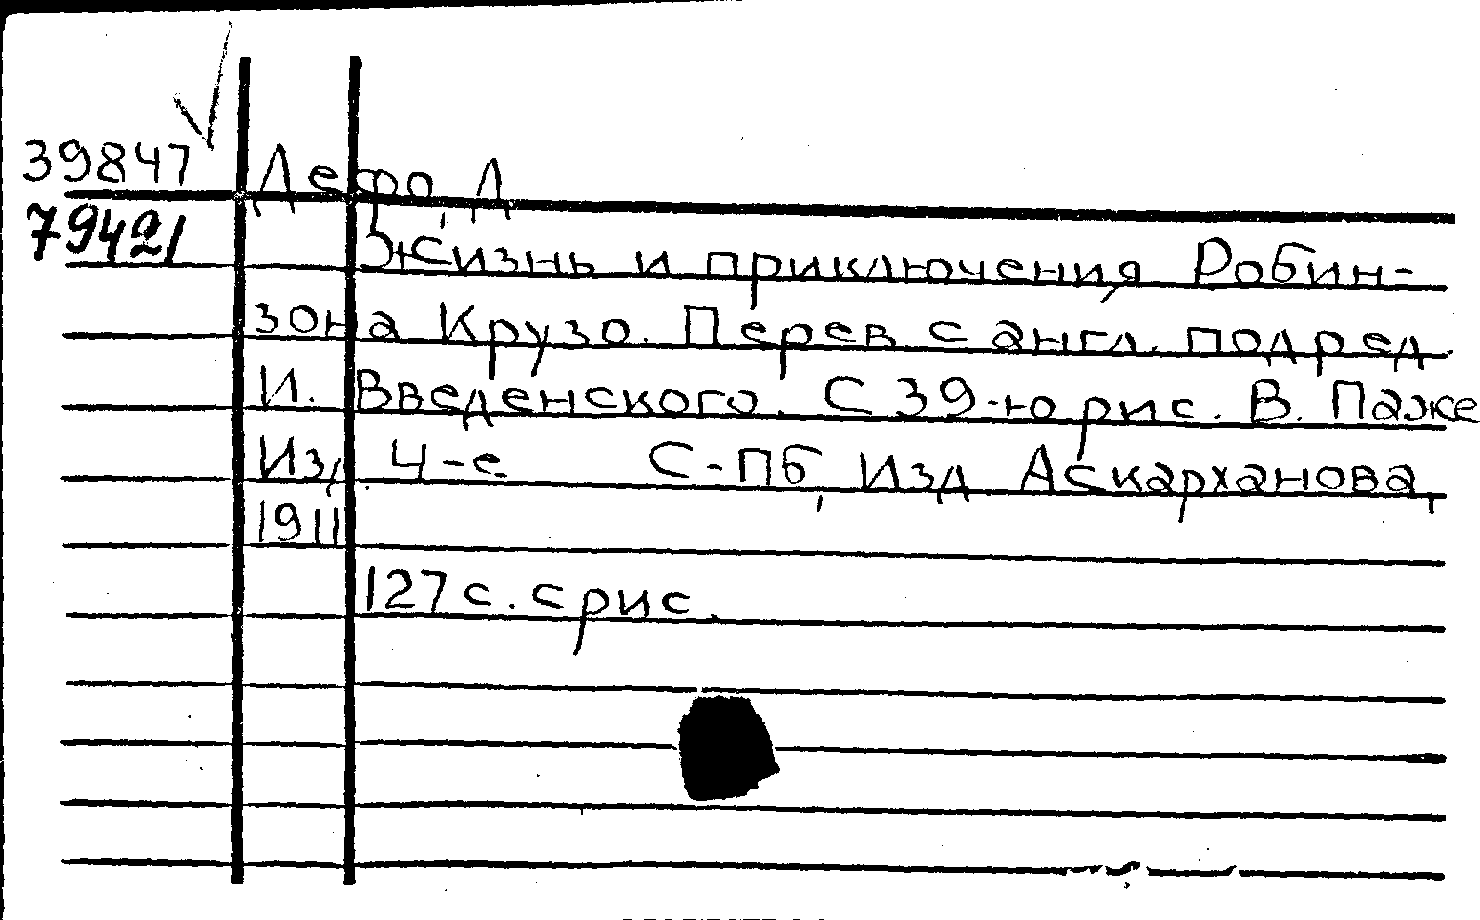 39847
Дефо, Д
79421
Жизнь и приключения Робин-
зона Крузо. Перев с англ. под ред.
И. Введенского. С 39-ю рис. В. Паже
Изд. 4-е С-Пб, Изд Аскарханова,
1911
127 с. с рис.